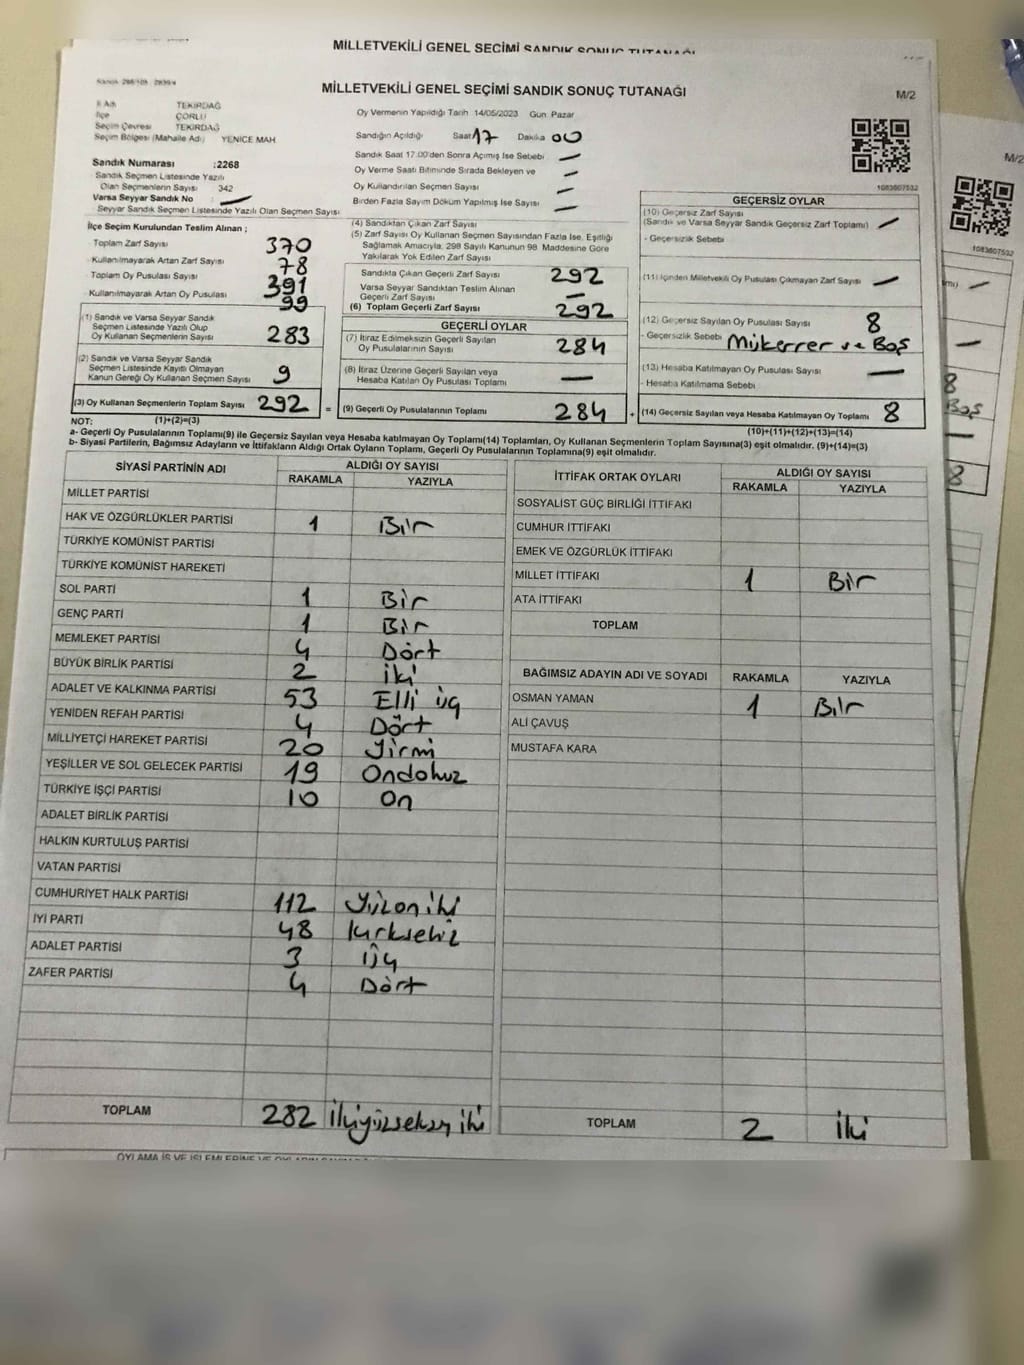 MİLLETVEKİLİ GENEL SEÇİMİ SANDIK SONUÇ TUTANAĞI
MİLLETVEKİLİ GENEL SEÇİMİ SANDIK SONUÇ TUTANAĞI
M/2
İl Adı TEKİRDAĞ
İlçe ÇORLU
Seçim Çevresi TEKİRDAĞ
Seçim Bölgesi (Mahalle Adı) YENİCE MAH
Sandık Numarası :2268
Sandık Seçmen Listesinde Yazılı
Olan Seçmenlerin Sayısı 342
Varsa Seyyar Sandık No —
Seyyar Sandık Seçmen Listesinde Yazılı Olan Seçmen Sayısı
Oy Vermenin Yapıldığı Tarih 14/05/2023 Gün: Pazar
Sandığın Açıldığı Saat 17 Dakika 00
Sandık Saat 17.00'den Sonra Açımış İse Sebebi —
Oy Verme Saati Bitiminde Sırada Bekleyen ve —
Oy Kullandırılan Seçmen Sayısı —
Birden Fazla Sayım Döküm Yapılmış İse Sayısı —
1083607532
İlçe Seçim Kurulundan Teslim Alınan ;
- Toplam Zarf Sayısı 370
- Kullanılmayarak Artan Zarf Sayısı 78
- Toplam Oy Pusulası Sayısı 391
- Kullanılmayarak Artan Oy Pusulası 99
(1) Sandık ve Varsa Seyyar Sandık
Seçmen Listesinde Yazılı Olup
Oy Kullanan Seçmenlerin Sayısı 283
(2) Sandık ve Varsa Seyyar Sandık
Seçmen Listesinde Kayıtlı Olmayan
Kanun Gereği Oy Kullanan Seçmen Sayısı 9
(3) Oy Kullanan Seçmenlerin Toplam Sayısı 292 =
(1)+(2)=(3)
(4) Sandıktan Çıkan Zarf Sayısı
(5) Zarf Sayısı Oy Kullanan Seçmen Sayısından Fazla İse, Eşitliği
Sağlamak Amacıyla, 298 Sayılı Kanunun 98. Maddesine Göre
Yakılarak Yok Edilen Zarf Sayısı
Sandıkta Çıkan Geçerli Zarf Sayısı 292
Varsa Seyyar Sandıktan Teslim Alınan
Geçerli Zarf Sayısı —
(6) Toplam Geçerli Zarf Sayısı 292
GEÇERLİ OYLAR
(7) İtiraz Edilmeksizin Geçerli Sayılan
Oy Pusulalarının Sayısı 284
(8) İtiraz Üzerine Geçerli Sayılan veya
Hesaba Katılan Oy Pusulası Toplamı —
(9) Geçerli Oy Pusulalarının Toplamı 284 +
GEÇERSİZ OYLAR
(10) Geçersiz Zarf Sayısı
(Sandık ve Varsa Seyyar Sandık Geçersiz Zarf Toplamı) —
- Geçersizlik Sebebi
(11) İçinden Milletvekili Oy Pusulası Çıkmayan Zarf Sayısı —
(12) Geçersiz Sayılan Oy Pusulası Sayısı 8
- Geçersizlik Sebebi Mükerrer ve Boş
(13) Hesaba Katılmayan Oy Pusulası Sayısı —
- Hesaba Katılmama Sebebi
(14) Geçersiz Sayılan veya Hesaba Katılmayan Oy Toplamı 8
(10)+(11)+(12)+(13)=(14)
NOT:
a- Geçerli Oy Pusulalarının Toplamı(9) ile Geçersiz Sayılan veya Hesaba katılmayan Oy Toplamı(14) Toplamları, Oy Kullanan Seçmenlerin Toplam Sayısına(3) eşit olmalıdır. (9)+(14)=(3)
b- Siyasi Partilerin, Bağımsız Adayların ve İttifakların Aldığı Ortak Oyların Toplamı, Geçerli Oy Pusulalarının Toplamına(9) eşit olmalıdır.
SİYASİ PARTİNİN ADI ALDIĞI OY SAYISI
RAKAMLA YAZIYLA
MİLLET PARTİSİ
HAK VE ÖZGÜRLÜKLER PARTİSİ 1 Bir
TÜRKİYE KOMÜNİST PARTİSİ
TÜRKİYE KOMÜNİST HAREKETİ
SOL PARTİ 1 Bir
GENÇ PARTİ 1 Bir
MEMLEKET PARTİSİ 4 Dört
BÜYÜK BİRLİK PARTİSİ 2 İki
ADALET VE KALKINMA PARTİSİ 53 Elli üç
YENİDEN REFAH PARTİSİ 4 Dört
MİLLİYETÇİ HAREKET PARTİSİ 20 Yirmi
YEŞİLLER VE SOL GELECEK PARTİSİ 19 Ondokuz
TÜRKİYE İŞÇİ PARTİSİ 10 On
ADALET BİRLİK PARTİSİ
HALKIN KURTULUŞ PARTİSİ
VATAN PARTİSİ
CUMHURİYET HALK PARTİSİ 112 Yüzoniki
İYİ PARTİ 48 kırksekiz
ADALET PARTİSİ 3 Üç
ZAFER PARTİSİ 4 Dört
TOPLAM 282 İkiyüzseksen iki
İTTİFAK ORTAK OYLARI ALDIĞI OY SAYISI
RAKAMLA YAZIYLA
SOSYALİST GÜÇ BİRLİĞİ İTTİFAKI
CUMHUR İTTİFAKI
EMEK VE ÖZGÜRLÜK İTTİFAKI
MİLLET İTTİFAKI 1 Bir
ATA İTTİFAKI
TOPLAM
BAĞIMSIZ ADAYIN ADI VE SOYADI RAKAMLA YAZIYLA
OSMAN YAMAN 1 Bir
ALİ ÇAVUŞ
MUSTAFA KARA
TOPLAM 2 İki
M/2
1083607532
—
—
8
Boş
—
8